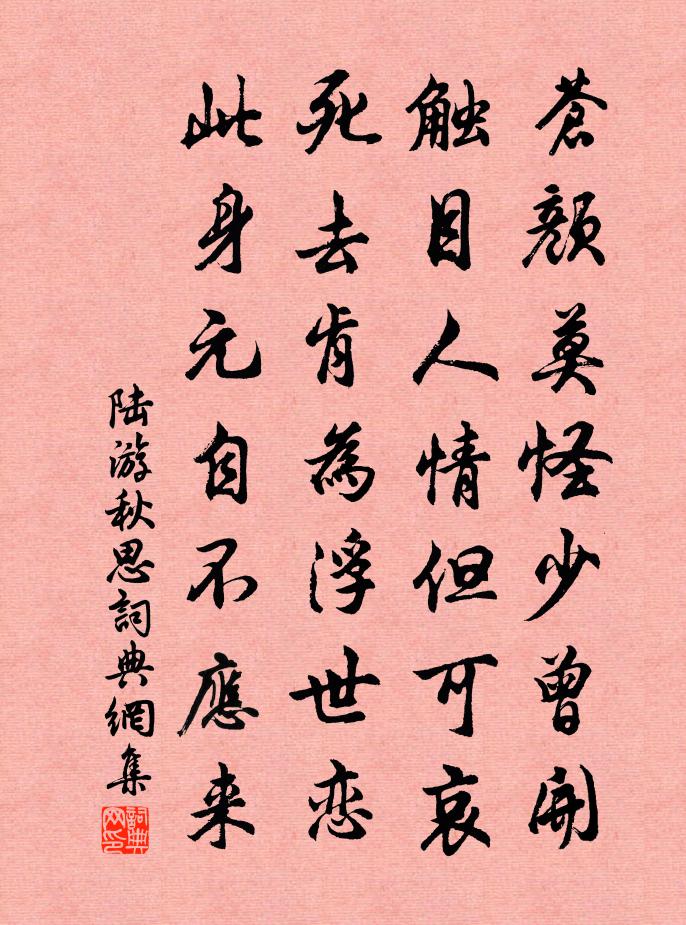 蒼顔莫怪少曾開
触目人情但可哀
死去肯為浮世恋
此身元自不應来
陆游秋思詞典網集
詞典网印